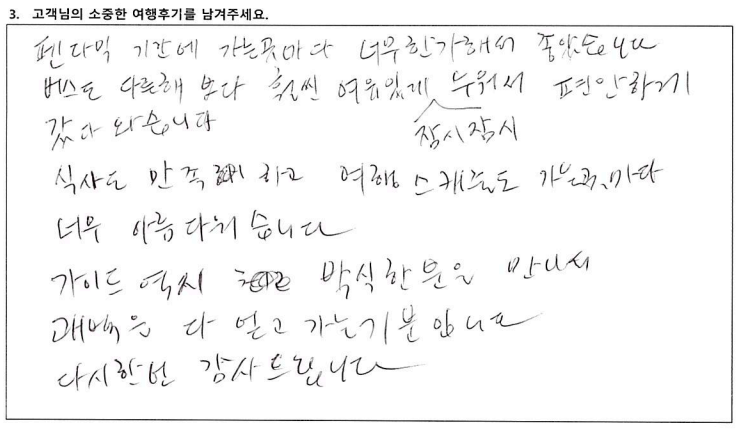 3. 고객님의 소중한 여행후기를 남겨주세요.
펜다믹 기간에 가는곳마다 너무한가해서 좋았습니다
버스도 다른해 보다 훨씬 여유있게 누워서 편안하게
잠시잠시
갔다 와습니다
식사도 만족 하고 여행 스케줄도 가는곳마다
너무 아름다워습니다
가이드 역시 박식한분을 만나서
다 얻고 가는기분입니다
다시한번 감사드립니다